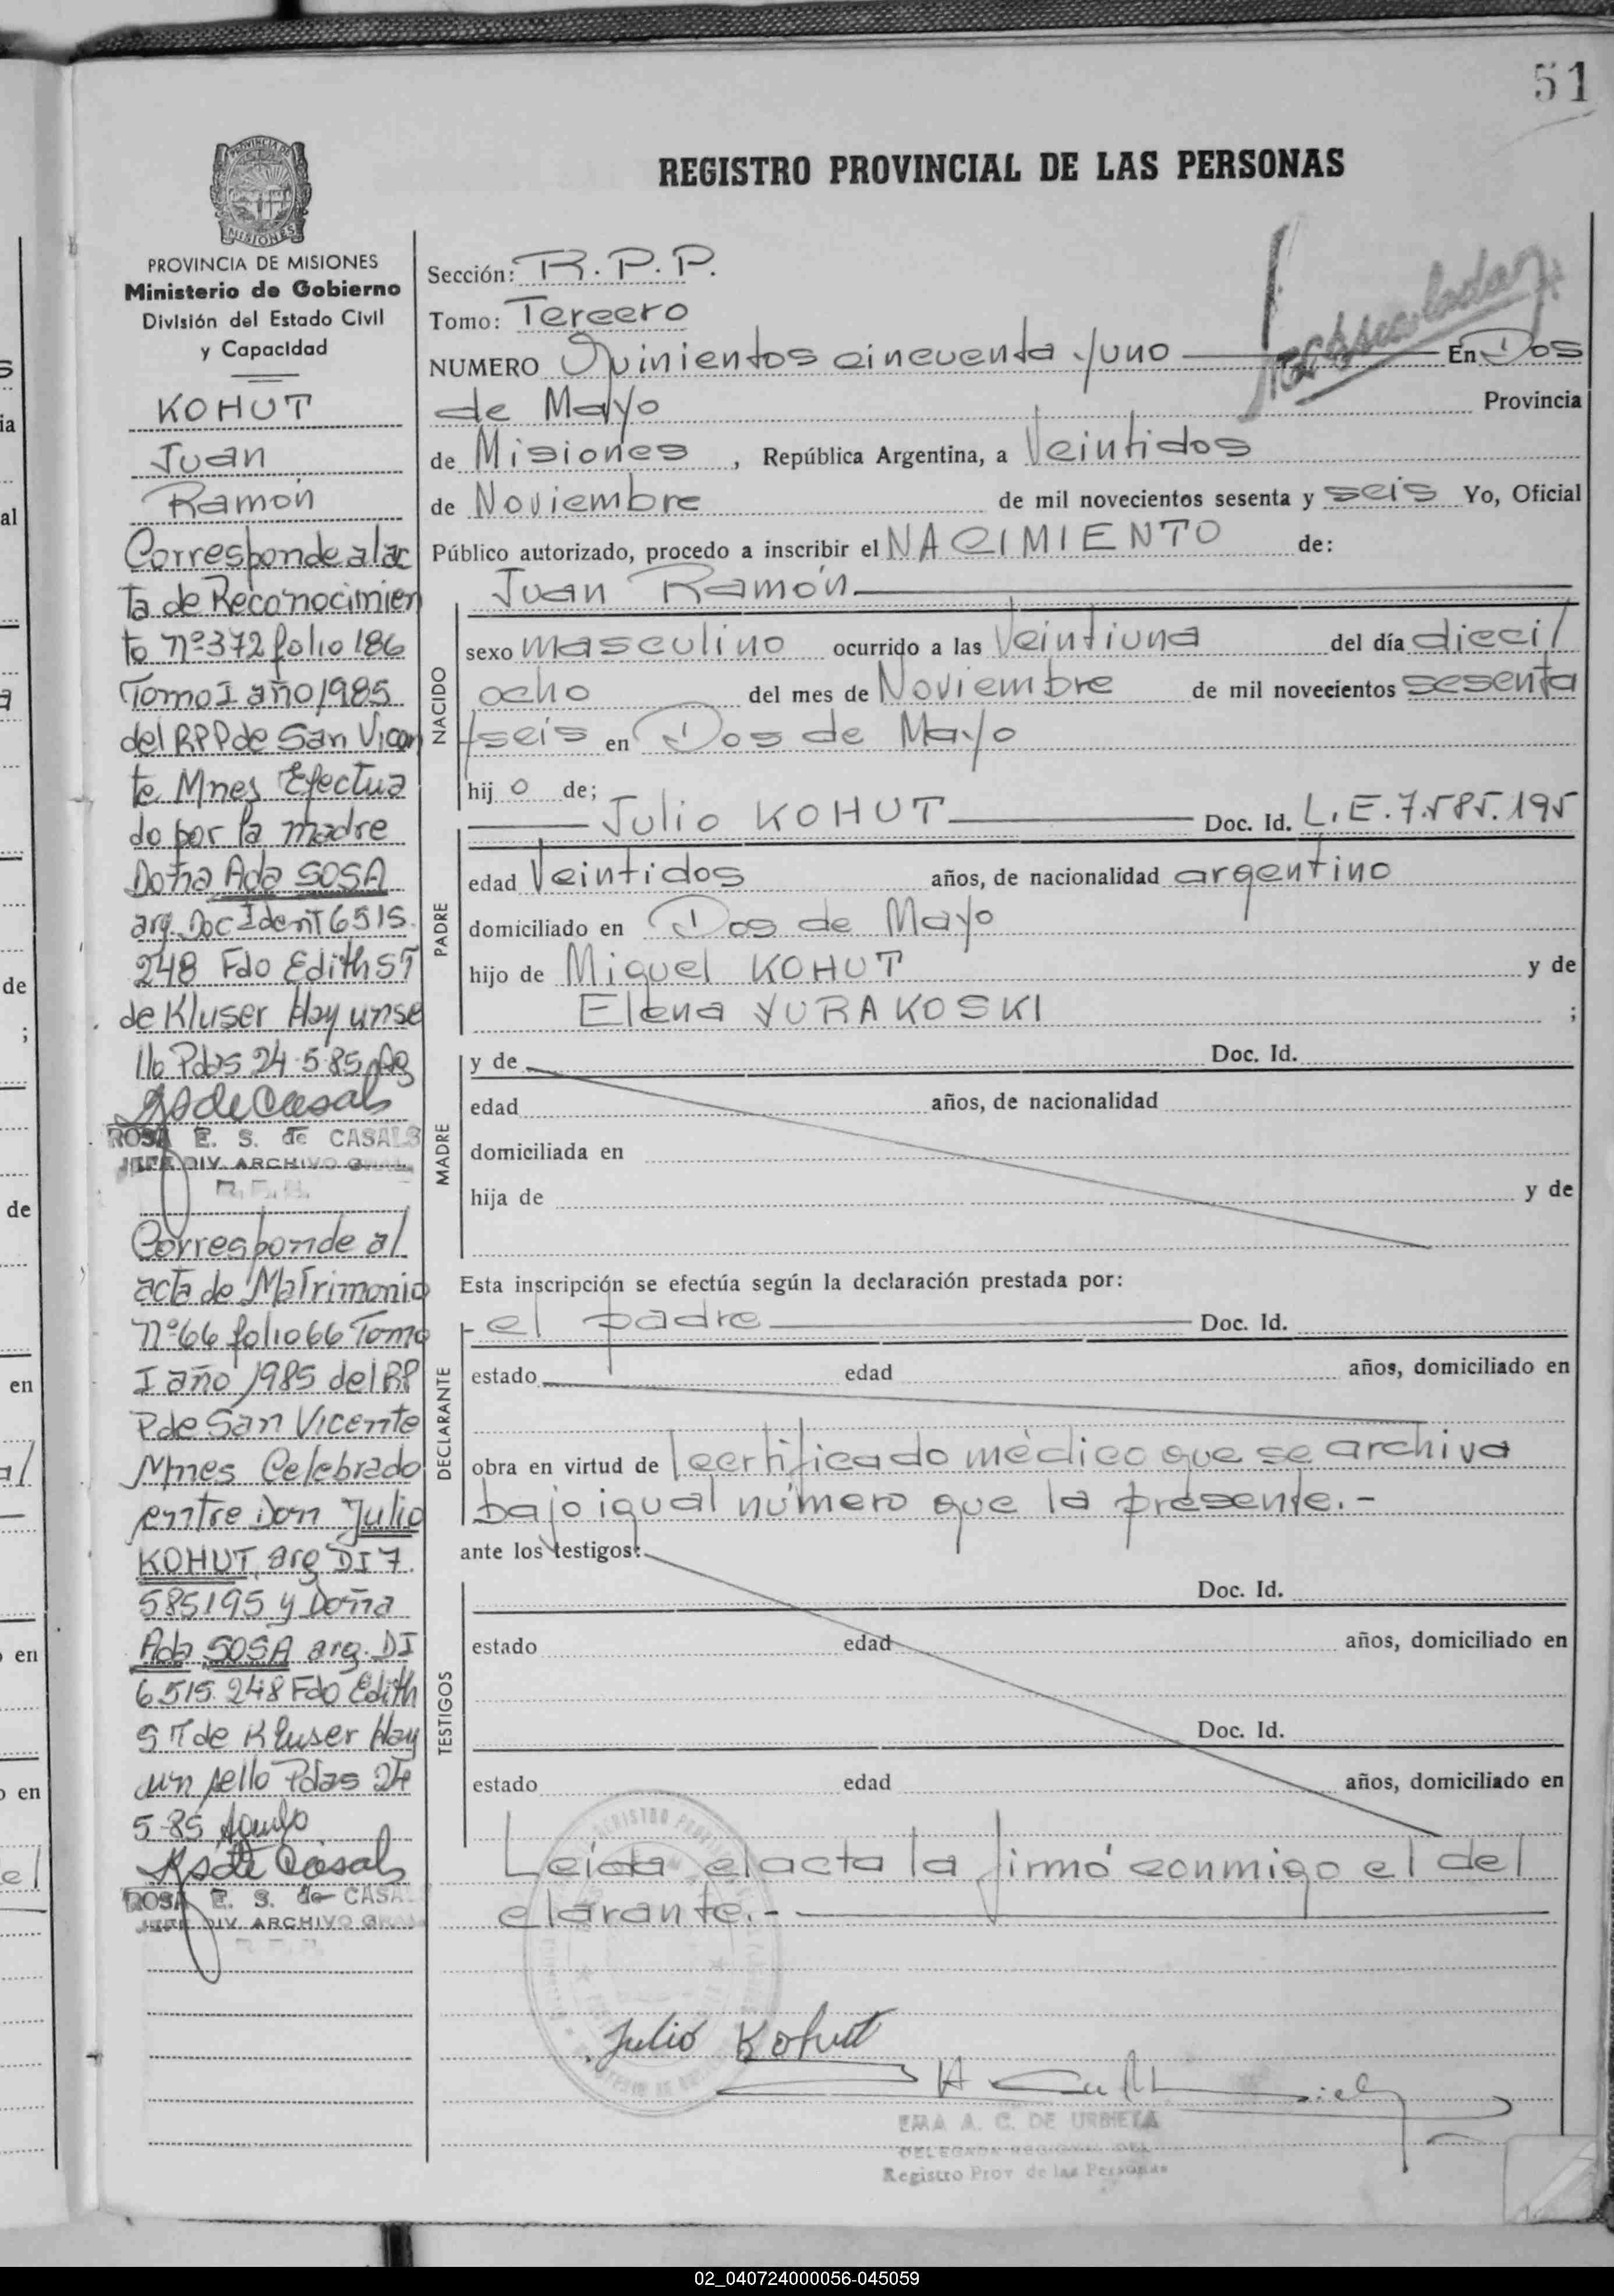 51
REGISTRO PROVINCIAL DE LAS PERSONAS
PROVINCIA DE
MISIONES
PROVINCIA DE MISIONES
Ministerio de Gobierno
División del Estado Civil
y Capacidad
KOHUT
Juan
Ramón
Corresponde al ac
ta de Reconocimien
to nº 372 folio 186
Tomo I año 1985
del RPP de San Vicen
te Mnes Efectua
do por la madre
Doña Ada SOSA
arg. Doc Ident 6515.
248 Fdo Edith ST
de Kluser Hay un se
llo Pdas 24-5-85
RS de Casals
ROSA E. S. de CASALS
JEFE DIV. ARCHIVO GRAL.
Corresponde al
acta de Matrimonio
nº 66 folio 66 Tomo
I año 1985 del RP
P de San Vicente
Mnes Celebrado
entre Don Julio
KOHUT, arg DI 7.
585195 y Doña
Ada SOSA arg. DI
6.515.248 Fdo Edith
ST de Kluser Hay
un sello Pdas 24
5-85
RS de Casals
ROSA E. S. de CASA
JEFE DIV. ARCHIVO GRAL
Sección: R.P.P.
Tomo: Tercero
NUMERO Quinientos cincuenta y uno En Dos
de Mayo Provincia
de Misiones , República Argentina, a Veintidos
de Noviembre de mil novecientos sesenta y seis Yo, Oficial
Público autorizado, procedo a inscribir el NACIMIENTO de:
Juan Ramón
NACIDO
sexo masculino ocurrido a las Veintiuna del día dieci/
ocho del mes de Noviembre de mil novecientos sesenta
y seis en Dos de Mayo
hij o de;
Julio KOHUT Doc. Id. L.E.7.585.195
PADRE
edad Veintidos años, de nacionalidad argentino
domiciliado en Dos de Mayo
hijo de Miguel KOHUT y de
Elena YURAKOSKI ;
MADRE
y de Doc. Id.
edad años, de nacionalidad
domiciliada en
hija de y de
Esta inscripción se efectúa según la declaración prestada por:
DECLARANTE
- el padre Doc. Id.
estado edad años, domiciliado en
obra en virtud de certificado médico que se archiva
bajo igual número que la presente.-
ante los testigos:
TESTIGOS
Doc. Id.
estado edad años, domiciliado en
Doc. Id.
estado edad años, domiciliado en
Leída el acta la firmó conmigo el de/
clarante.-
Julio Kohut
EMA A. C. DE URBIETA
DELEGADA REGIONAL DEL
Registro Prov de las Personas
02_040724000056-045059